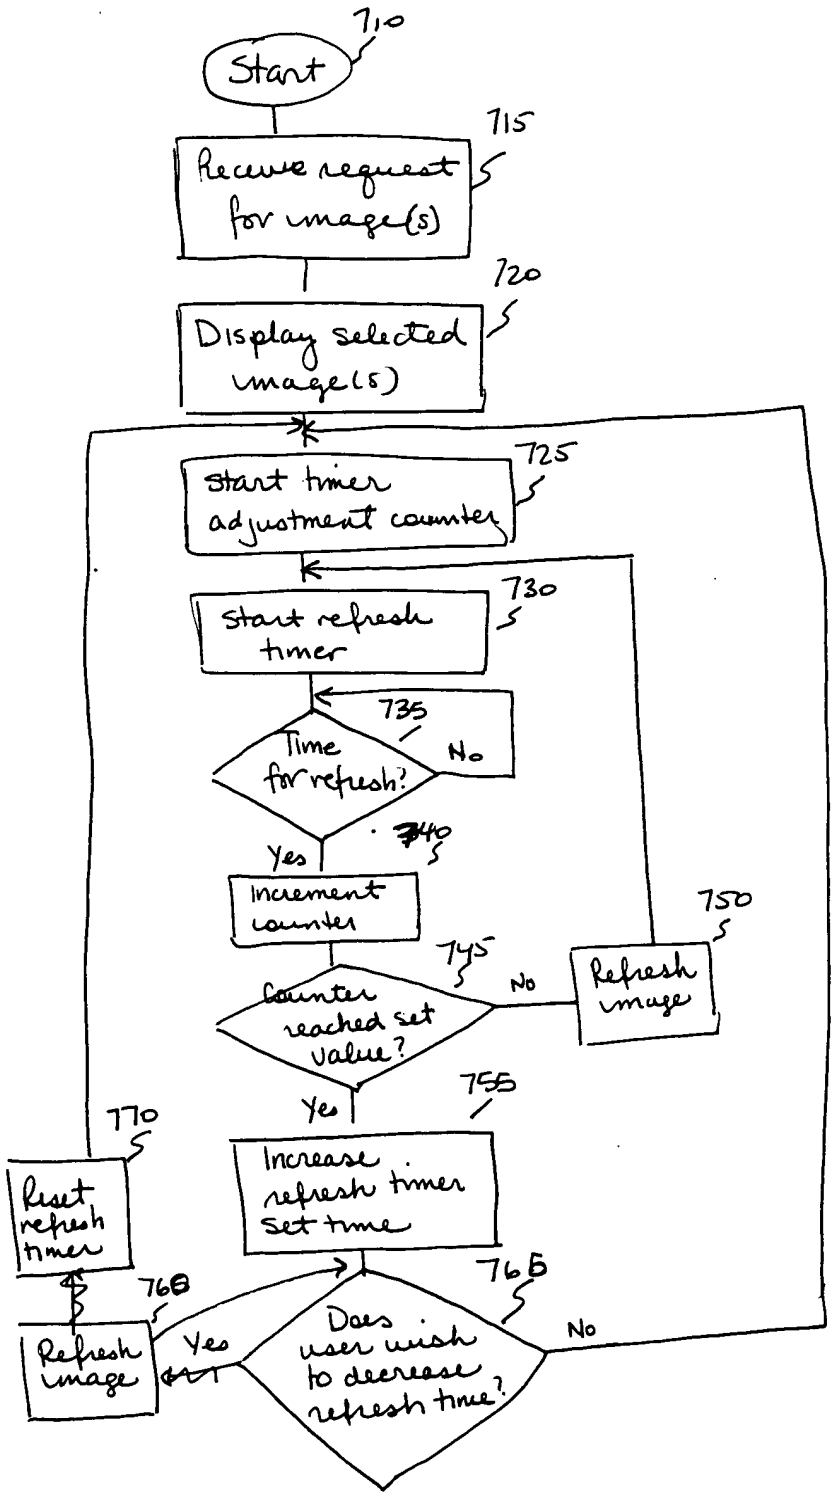 710
Start
715
Receive request
for image(s)
720
Display selected
image(s)
725
start timer
adjustment counter
730
start refresh
timer
735
Time
for refresh?
No
740
Yes
Increment
counter
750
745
Counter
reached set
value?
No
Refresh
image
755
Yes
770
Increase
refresh timer
set time
Reset
refresh
timer
765
Does
user wish
to decrease
refresh time?
Yes
No
Refresh
image